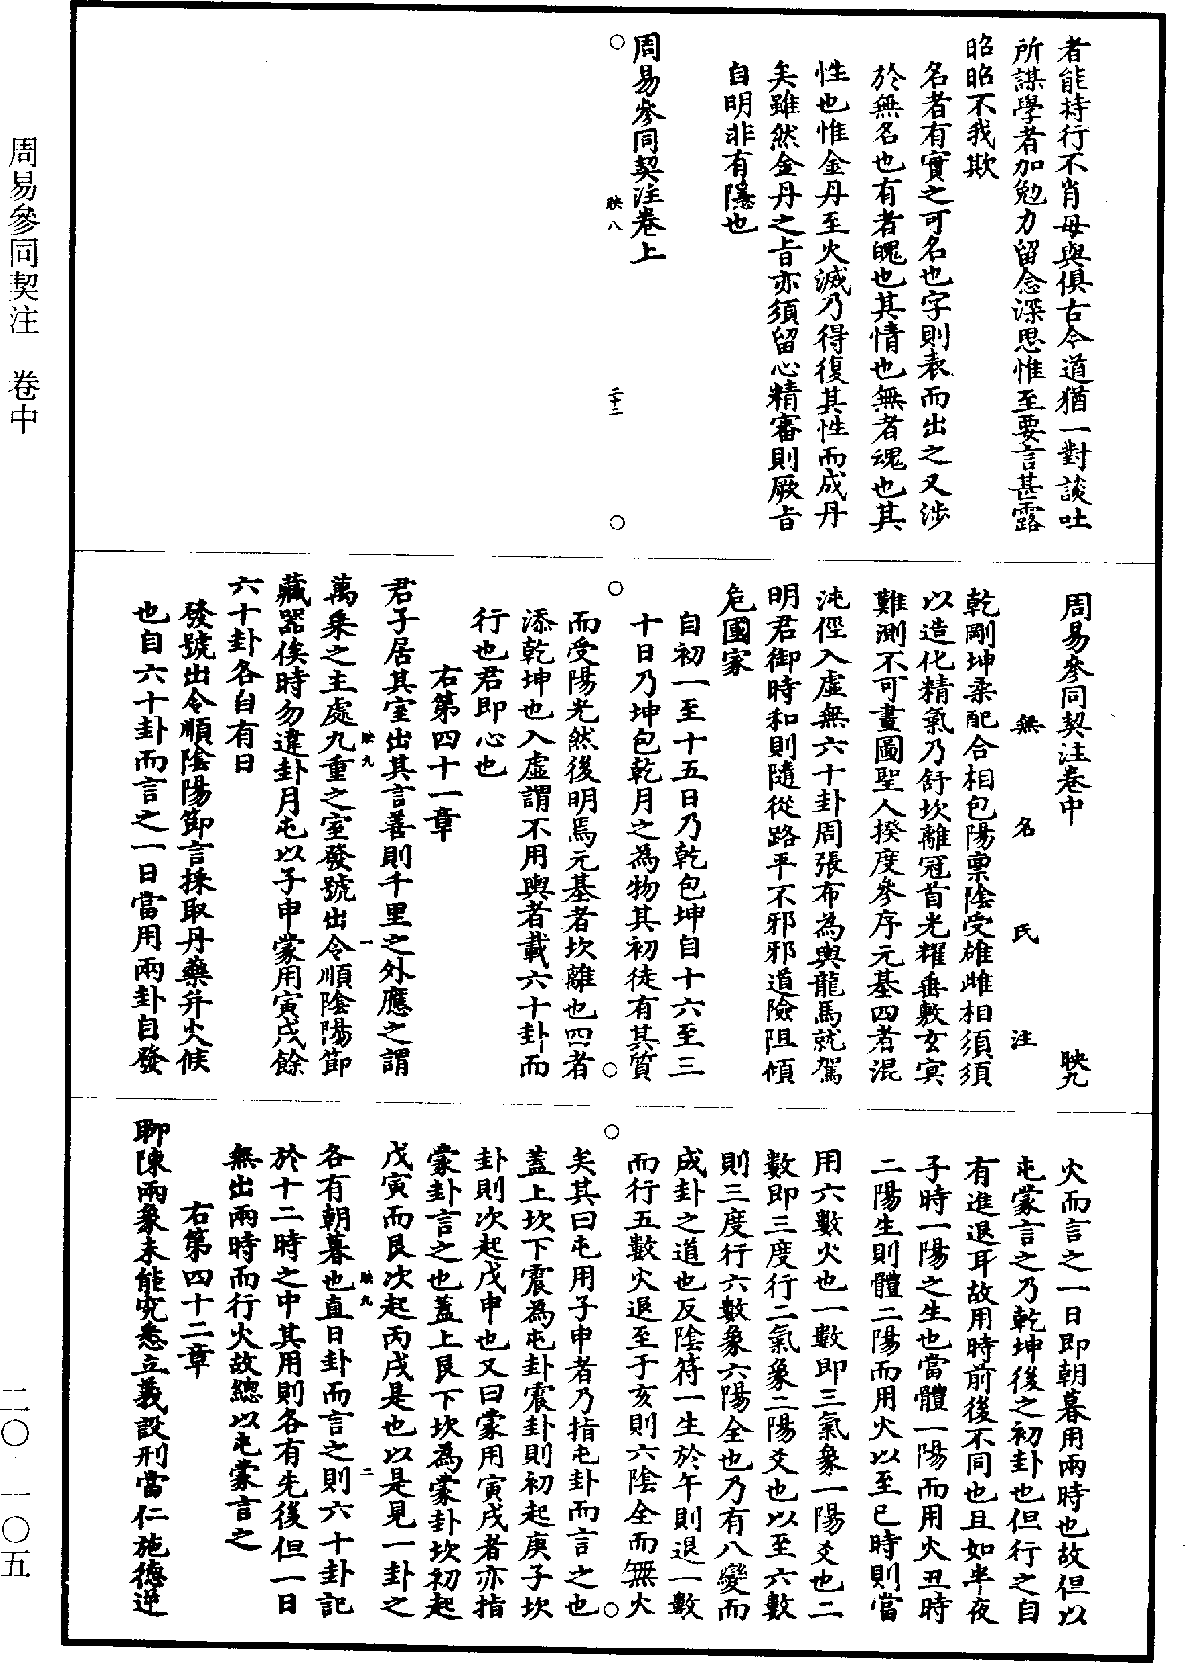 者能持行不肖毋與俱古今道猶一對談吐
所謀學者加勉力留念深思惟至要言甚露
昭昭不我欺
名者有實之可名也字則表而出之又涉
於無名也有者魄也其情也無者魂也其
性也惟金丹至火滅乃得復其性而成丹
矣雖然金丹之旨亦須留心精審則厥旨
自明非有隱也
周易參同契注卷上
映八
二十二
周易參同契注卷中
映九
無名氏注
乾剛坤柔配合相包陽稟陰受雄雌相須須
以造化精氣乃舒坎離冠首光耀垂敷玄冥
難測不可畫圖聖人揆度參序元基四者混
沌徑入虛無六十卦周張布為輿龍馬就駕
明君御時和則隨從路平不邪邪道險阻傾
危國家
自初一至十五日乃乾包坤自十六至三
十日乃坤包乾月之為物其初徒有其質
而受陽光然後明焉元基者坎離也四者
添乾坤也入虛謂不用輿者載六十卦而
行也君即心也
右第四十一章
君子居其室出其言善則千里之外應之謂
映九
一
萬乘之主處九重之室發號出令順陰陽節
藏器俟時勿違卦月屯以子申蒙用寅戌餘
六十卦各自有日
發號出令順陰陽節言採取丹藥并火候
也自六十卦而言之一日當用兩卦自發
火而言之一日即朝暮用兩時也故但以
屯蒙言之乃乾坤後之初卦也但行之自
有進退耳故用時前後不同也且如半夜
子時一陽之生也當體一陽而用火丑時
二陽生則體二陽而用火以至巳時則當
用六數火也一數即三氣象一陽爻也二
數即三度行二氣象二陽爻也以至六數
則三度行六數象六陽全也乃有八變而
成卦之道也反陰符一生於午則退一數
而行五數火退至于亥則六陰全而無火
矣其曰屯用子申者乃指屯卦而言之也
蓋上坎下震為屯卦震卦則初起庚子坎
卦則次起戊申也又曰蒙用寅戌者亦指
蒙卦言之也蓋上艮下坎為蒙卦坎初起
戊寅而艮次起丙戌是也以是見一卦之
映九
二
各有朝暮也直日卦而言之則六十卦記
於十二時之中其用則各有先後但一日
無出兩時而行火故總以屯蒙言之
右第四十二章
聊陳兩象未能究悉立義設刑當仁施德逆
周易參同契注 卷中
二〇·一〇五